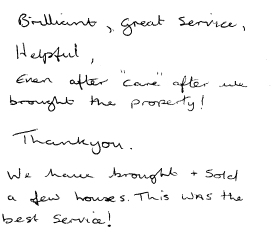 Brilliant, great service,
Helpful,
Even after "care" after we
brought the property!
Thankyou.
We have brought + sold
a few houses. This was the
best service!